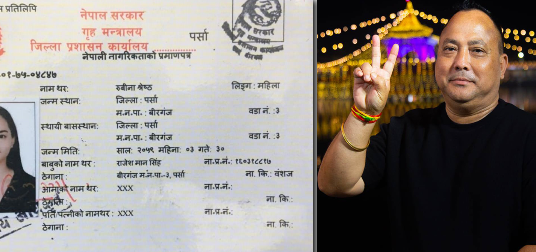 प्रतिलिपि
नेपाल सरकार
गृह मन्त्रालय
जिल्ला प्रशासन कार्यालय पर्सा
नेपाली नागरिकताको प्रमाणपत्र
०१-७५-०४८४७
नाम थर: रुबीना श्रेष्ठ लिङ्ग: महिला
जन्म स्थान: जिल्ला: पर्सा
म.न.पा.: बीरगंज वडा नं.:३
स्थायी बासस्थान: जिल्ला: पर्सा
म.न.पा.: बीरगंज वडा नं.:३
जन्म मिति: साल: २०५९ महिना: ०३ गते: ३०
बाबुको नाम थर: राजेश मान सिंह ना.प्र.नं.: १६०३१८८१७
ठेगाना: बीरगंज म.न.पा.-३, पर्सा ना. कि.: वंशज
आमाको नाम थर: XXX ना.प्र.नं.:
ठेगाना: ना. कि.:
पति/पत्नीको नामथर: XXX ना.प्र.नं.:
ठेगाना: ना. कि.: